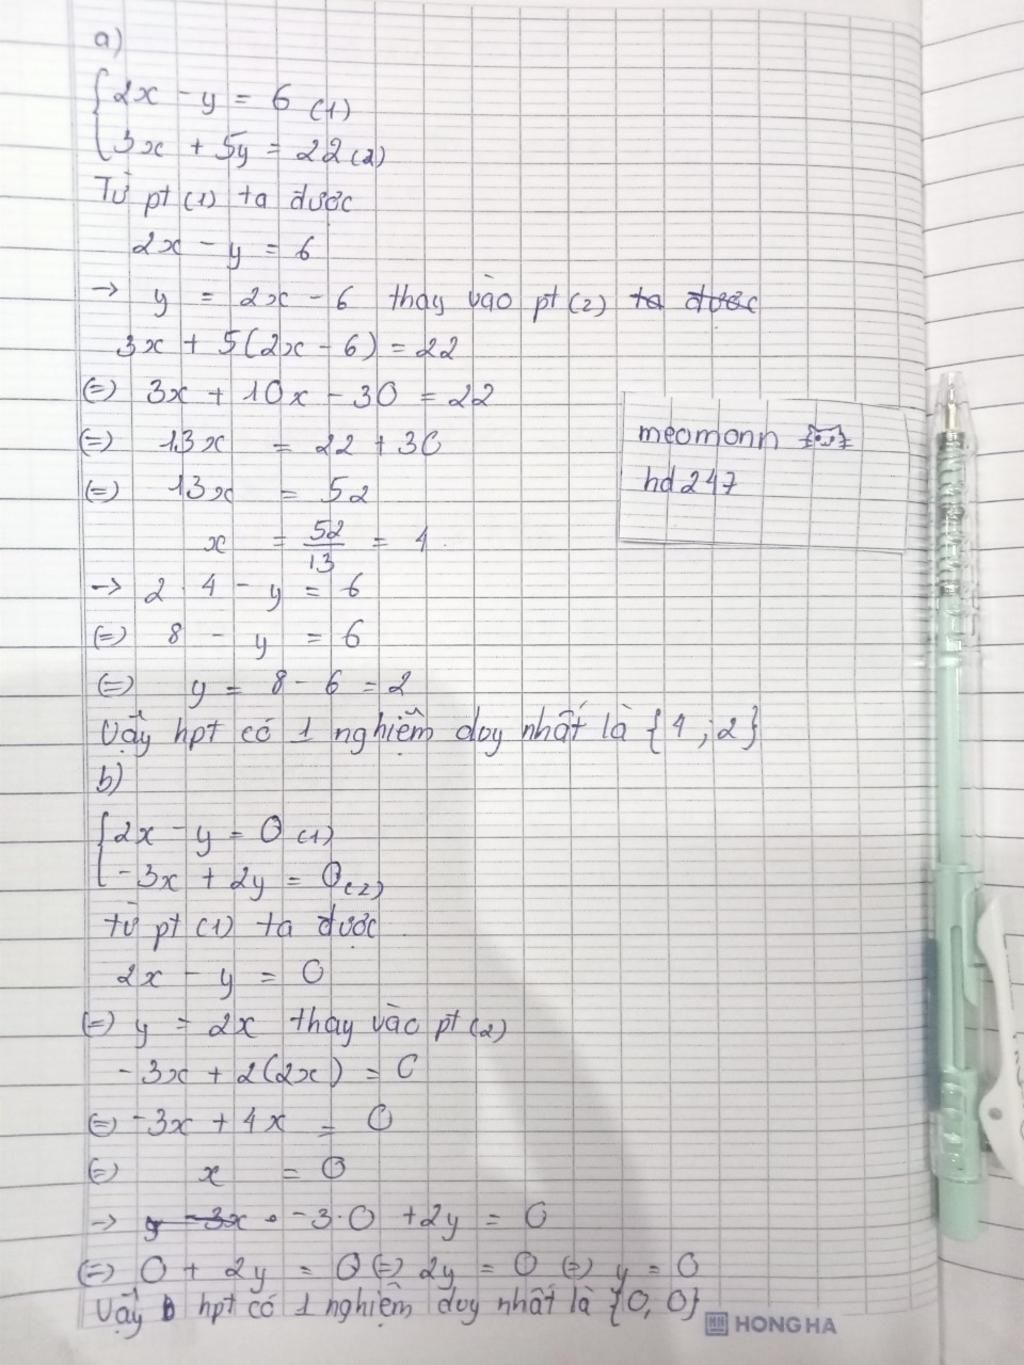 a)
{2x - y = 6 (1)
3x + 5y = 22 (2)
Từ pt (1) ta được
2x - y = 6
→ y = 2x - 6 thay vào pt (2) ta được
3x + 5(2x - 6) = 22
(=) 3x + 10x - 30 = 22
(=) 13x = 22 + 30
(=) 13x = 52
x = 52/13 = 4
→ 2 . 4 - y = 6
(=) 8 - y = 6
(=) y = 8 - 6 = 2
Vậy hpt có 1 nghiệm duy nhất là {4 ; 2}
b)
{2x - y = 0 (1)
-3x + 2y = 0 (2)
từ pt (1) ta được
2x - y = 0
(=) y = 2x thay vào pt (2)
-3x + 2(2x) = 0
(=) -3x + 4x = 0
(=) x = 0
→ y -3x . -3.0 + 2y = 0
(=) 0 + 2y = 0 (=) 2y = 0 (=) y = 0
Vậy hpt có 1 nghiệm duy nhất là {0, 0}
meomonn
hd247
HONG HA